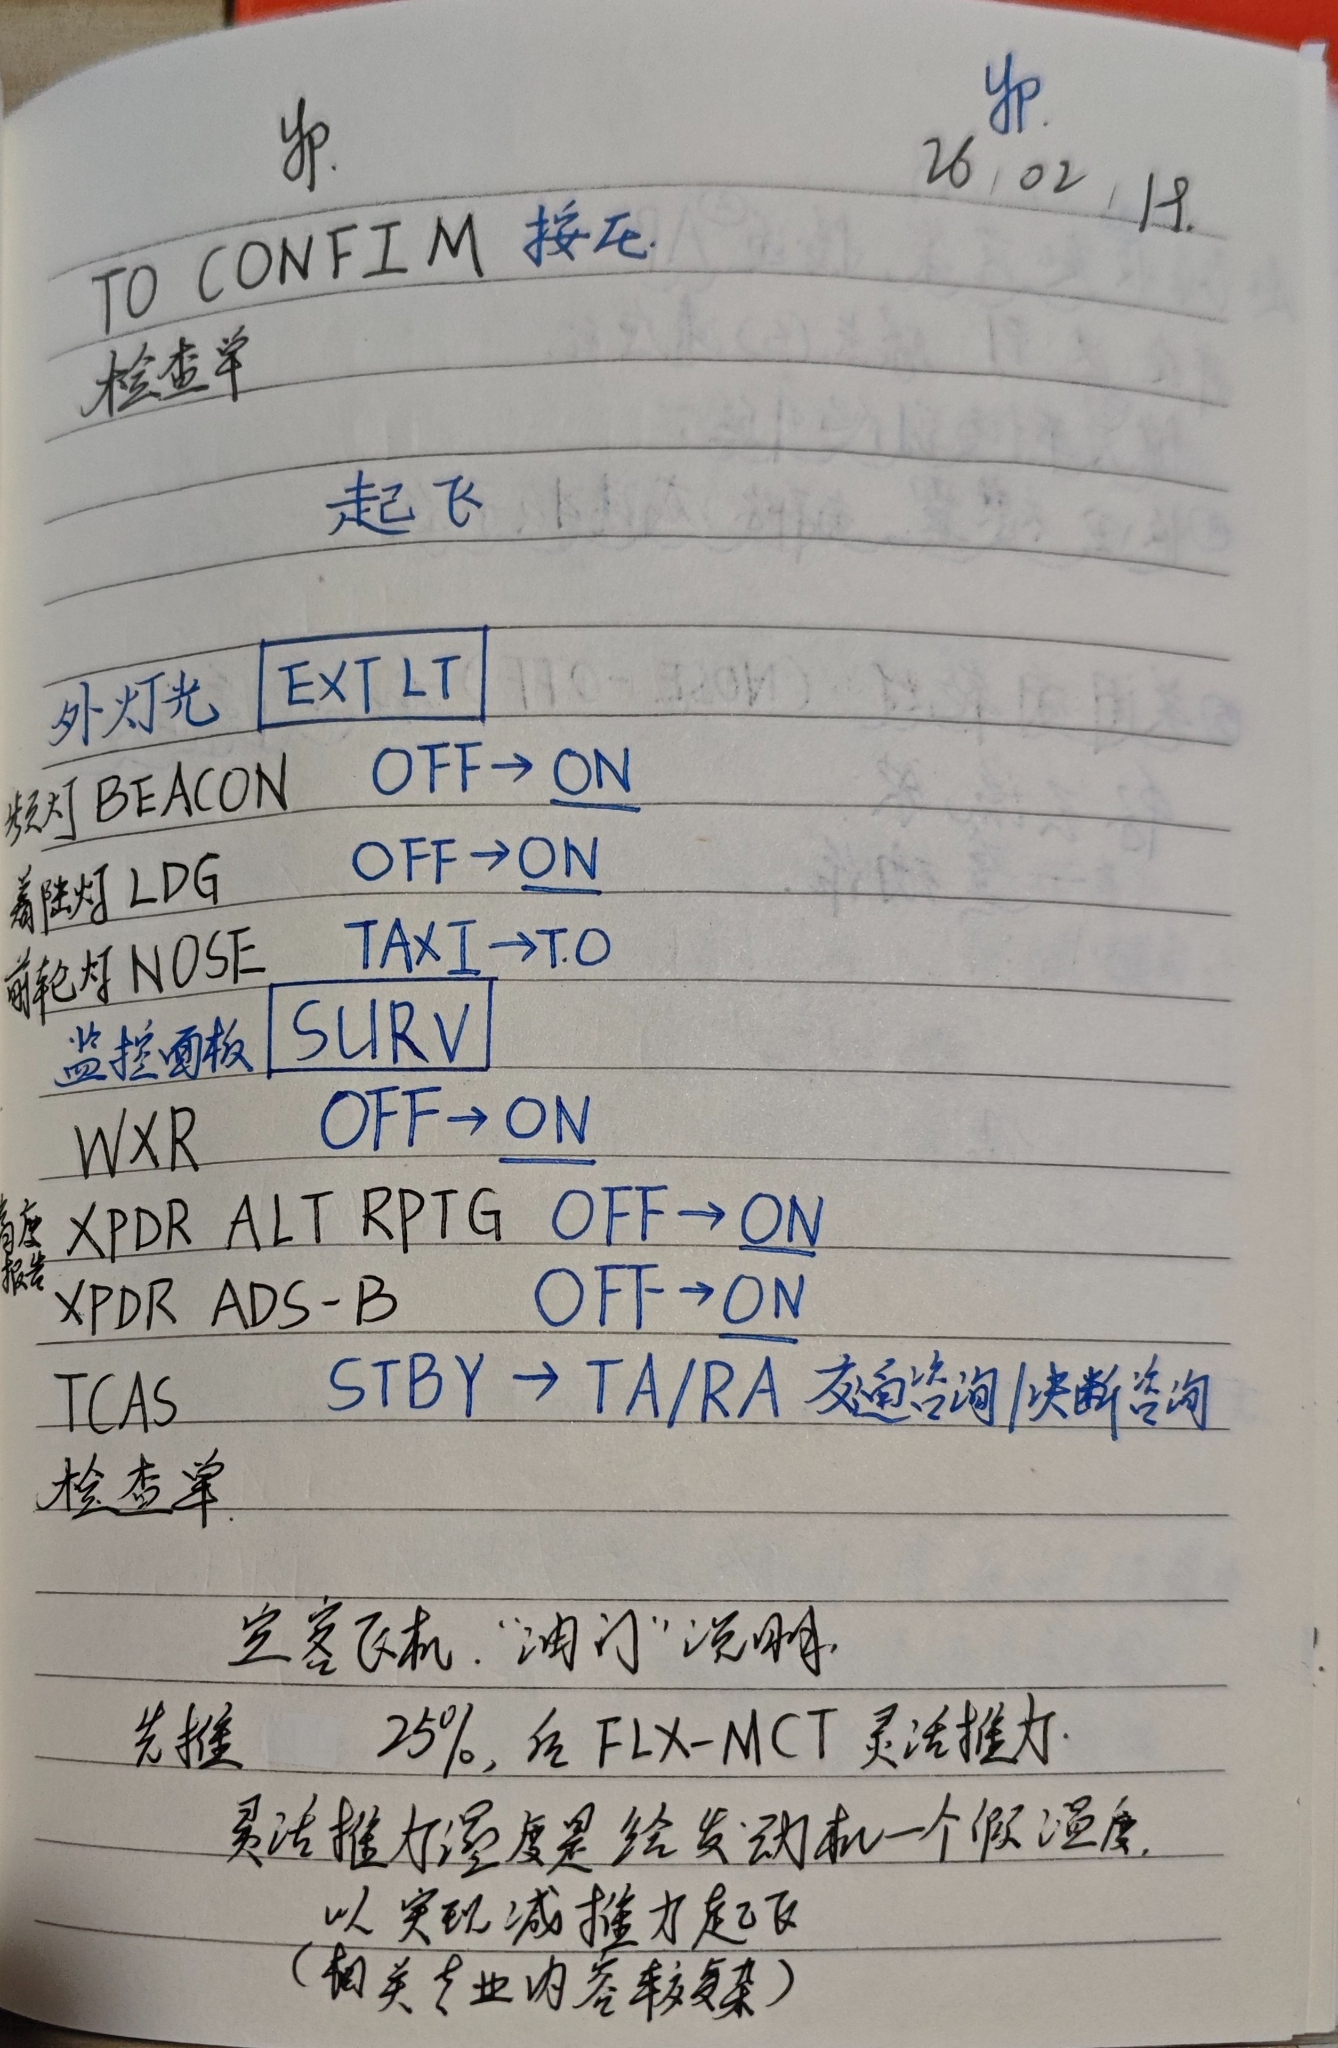 26.02.19.
TO CONFIM 按压.
检查单
起飞
外灯光 EXT LT
频灯 BEACON OFF→ON
着陆灯 LDG OFF→ON
前轮灯 NOSE TAXI→T.O
监控面板 SURV
WXR OFF→ON
高度报告 XPDR ALT RPTG OFF→ON
XPDR ADS-B OFF→ON
TCAS STBY → TA/RA 交通咨询/决断咨询
检查单.
空客飞机.“油门”说明.
先推 25%, 后 FLX-MCT 灵活推力.
灵活推力温度是给发动机一个假温度.
以实现减推力起飞
(相关专业内容较复杂)